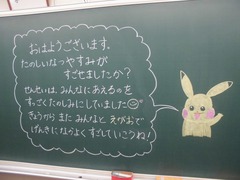 おはようございます。
たのしいなつやすみが
すごせましたか？
せんせいは、みんなにあえるのを
すごくたのしみにしていました
きょうから また みんなと えがおで
げんきに なかよく すごしていこうね！